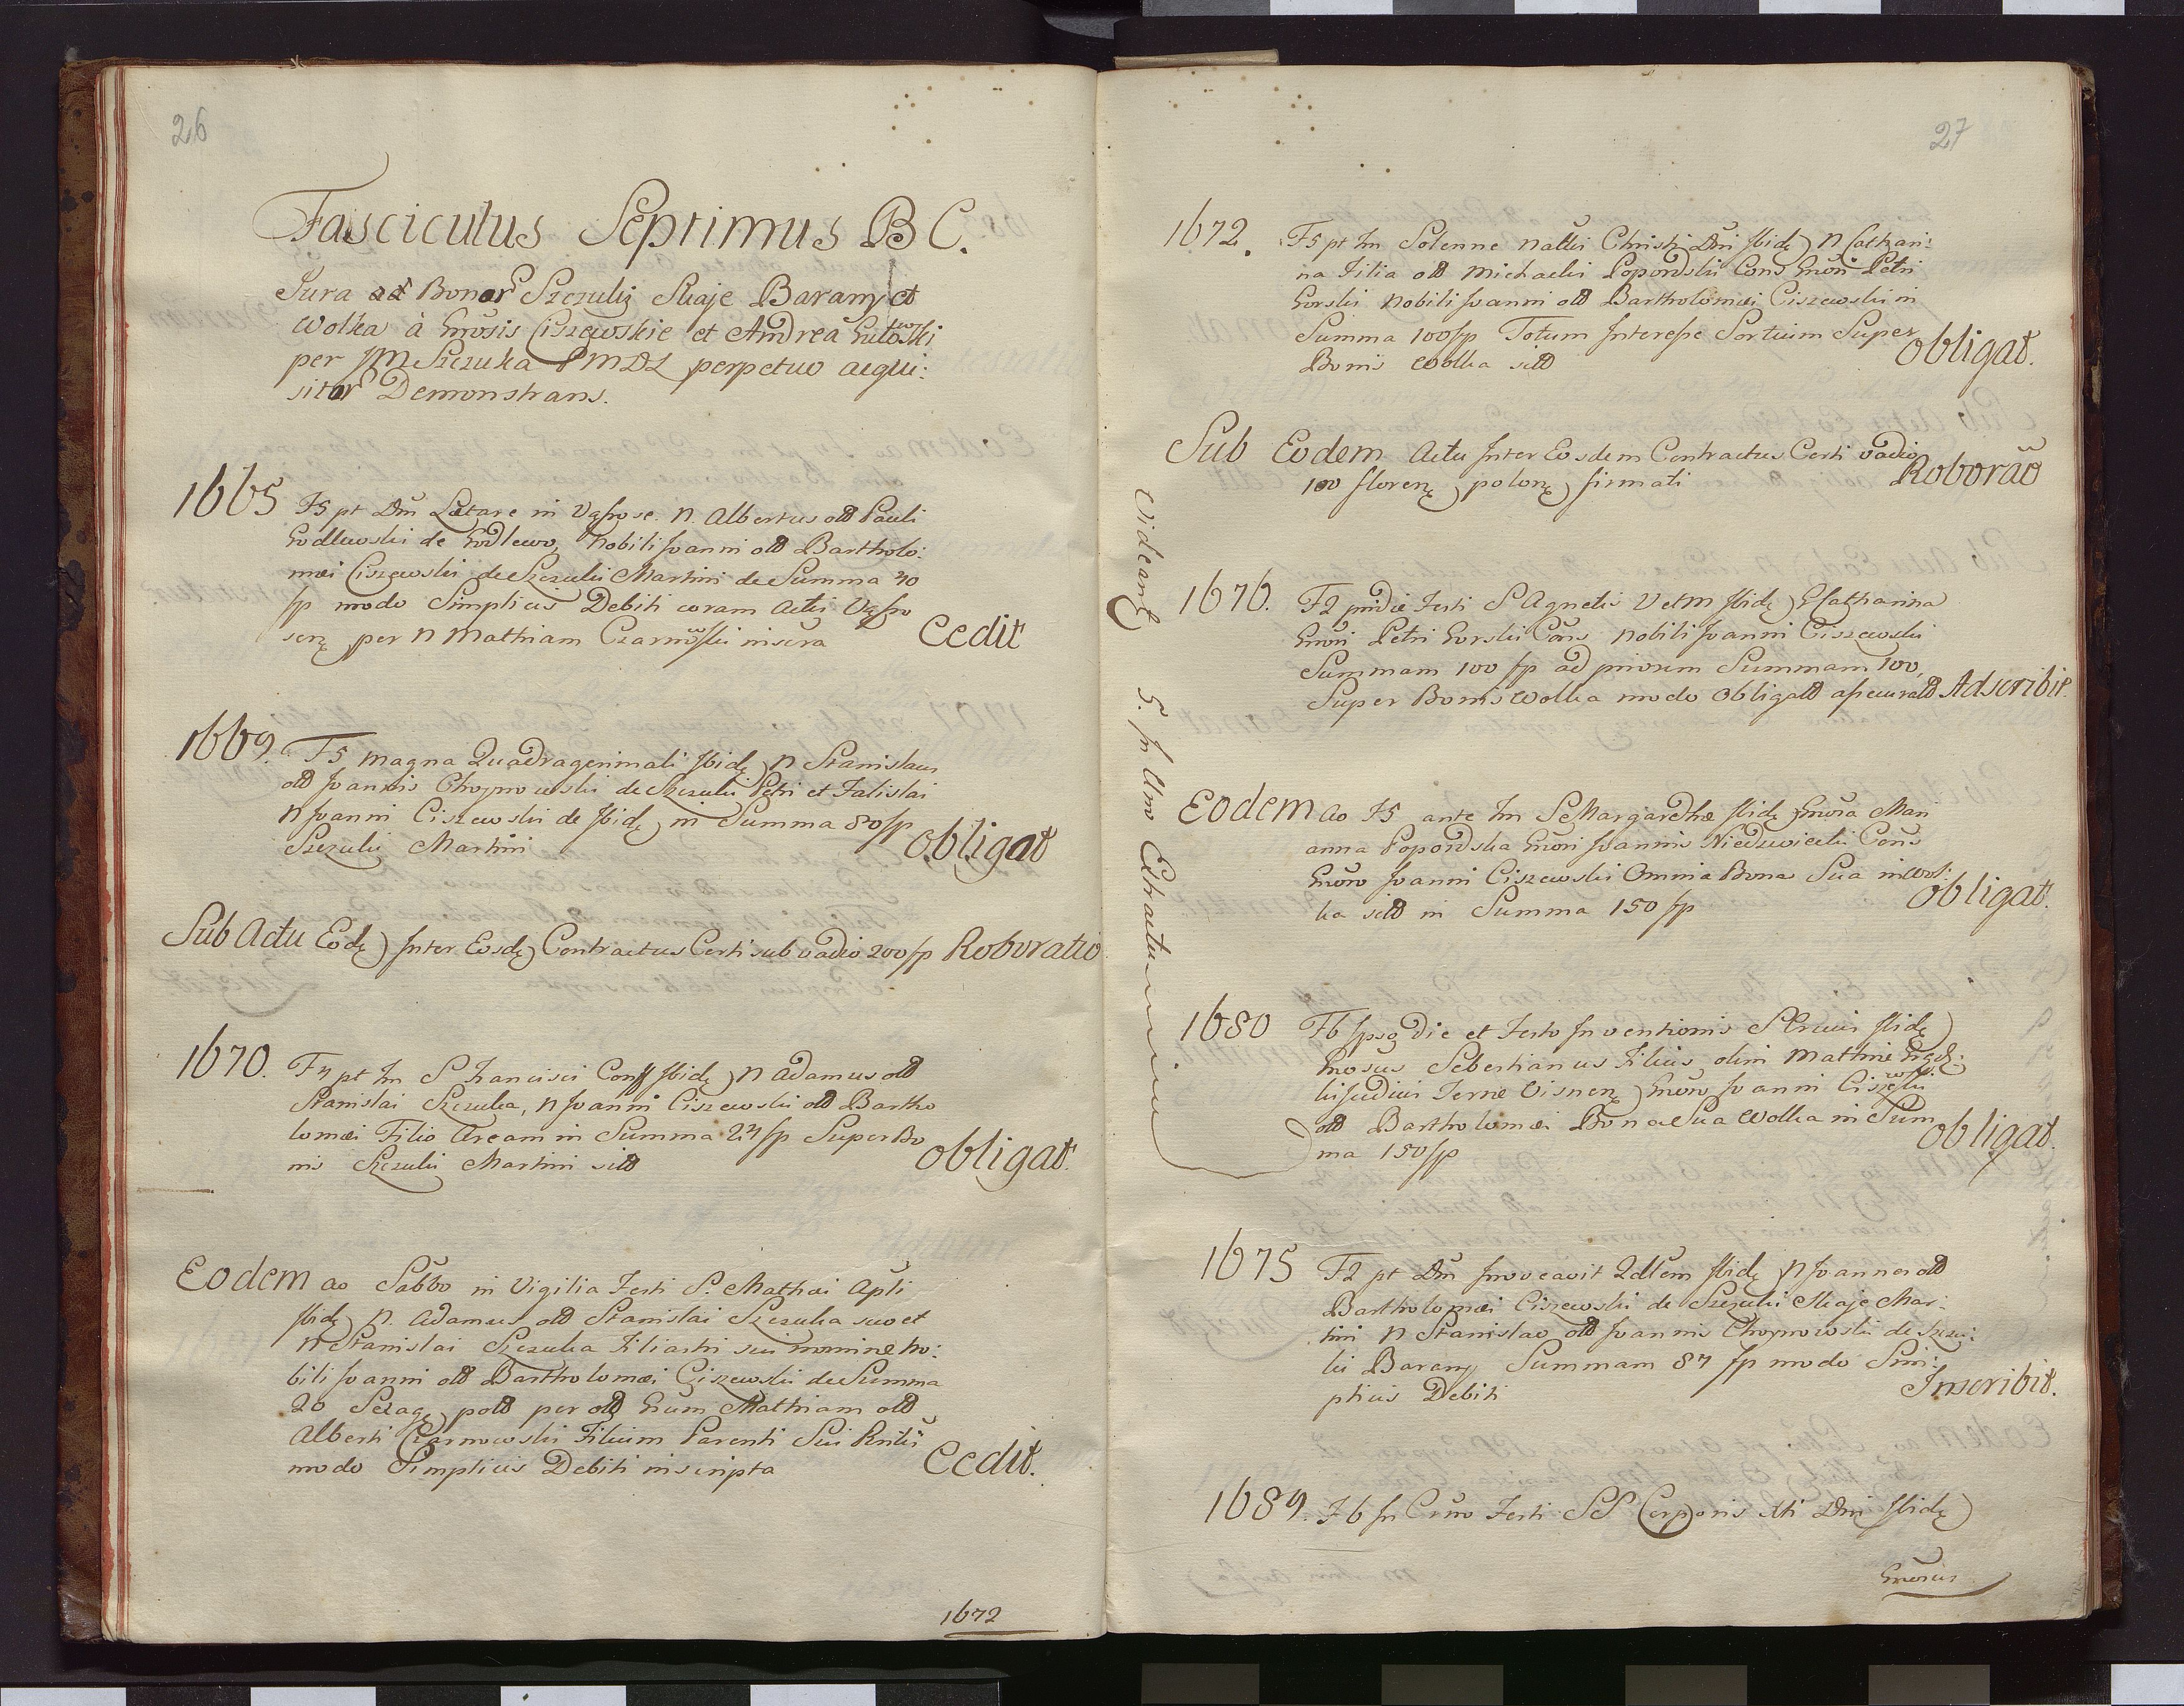 26
Fasciculus Septimus B C.
Jura ad Bonor Szczuki Skaje Barany et
Wolka à Gnōsis Ciszewskie et Andrea Gutowski
per JM Szczuka PMDL perpetuo acqui:
sitor Demonstrans.
1665 F5 pt Dm̄ Lætare in Vąsose. N. Albertus old Pauli
Godlewski de Godlewo, Nobili Joanni old Bartholo:
mæi Ciszewski de Szczuki Martini de Summa 40
fp modo Simplicis Debiti coram Actis Vąso
senę per N Mathiam Czarnowski inscra Cedit
1669. F5 magna Quadragenimali Ibidę N Stanislaus
old Joannis Choynowski de Szczuki Petri et Falislai
N Joanni Ciszewski de Ibidę in Summa 80 fp
Szczuki Martini obligat
Sub Actu Eodę Inter Eosdę Contractus Certi sub vadio 200 fp Roboratio
1670. F4 pt Im S Francisci Conff Ibidę N Adamus old
Stanislai Szczuka, N Joanni Ciszewski old Bartho
lomæi Filio Aream in Summa 24 fp Super Bo
nis Szczuki Martini sitt obligat.
Eodem ao Sabbo in Vigilia Festi S. Mathæi Apli
Ibidę N. Adamus old Stanislai Szczuka suo et
N Stanislai Szczuka Filiastri sui nomine No:
bili Joanni old Bartholomæi Ciszewski de Summa
20 Sexagę pold per old Gnum Mathiam old
Alberti Czarnowski Filium Parenti Sui
modo Simplicis Debiti inscripta Cedit.
1672
27
1672. F5 pt Im Solenne Nattis Christi Dni Ibidę N Cathari:
na Filia old Michaelis Popowski Cons Gnōri Petri
Gorski Nobili Joanni old Bartholomæi Ciszewski in
Summa 100 fp Totum Interesse Sortium Super
Bonis Wolka sitt obligat.
Sub Eodem Actu Inter Eosdem Contractus Certi vadio
100 florenę polonę firmati Roborāo
1676. F2 pridie Festi S Agnetis V et M Ibidę G Catharina
Gnōri Petri Gorski Cons Nobili Joanni Ciszewski
Summam 100 fp ad priorem Summam 100,
Super Bonis Wolka modo Obligatt assecuratt Adscribit.
Eodem ao F5 ante Im S Margarethæ Ibidę Gnōsa Mari
anna Popowska Gnōri Joannis Niedzwiecki Cons
Gnōso Joanni Ciszewski Omnia Bona Sua in Wol:
ka sitt in Summa 150 fp obligat.
1680 F6 Ipso die et Festo Inventionis S Crucis Ibidę
Gnōsus Sebestianus Filius olim Mathiæ
Judicis Terræ Visnenę Gnōso Joanni Ciszewski
old Bartholomæi Bona Sua Wolka in Sum
ma 150 fp obligat.
1675 F2 pt Dm̄ Invocavit Qdlem Ibidę N Joannes old
Bartholomæi Ciszewski de Szczuki Skaje Mar:
tini N Stanislao old Joannis Choynowski de Szczu:
ki Barany Summam 84 fp modo Sim:
plicis Debiti Inscribit.
1689. F6 In Crno Festi SS Corporis Xti Dni Ibidę
Gnōsus
Videantę 5. In Uno Extractu